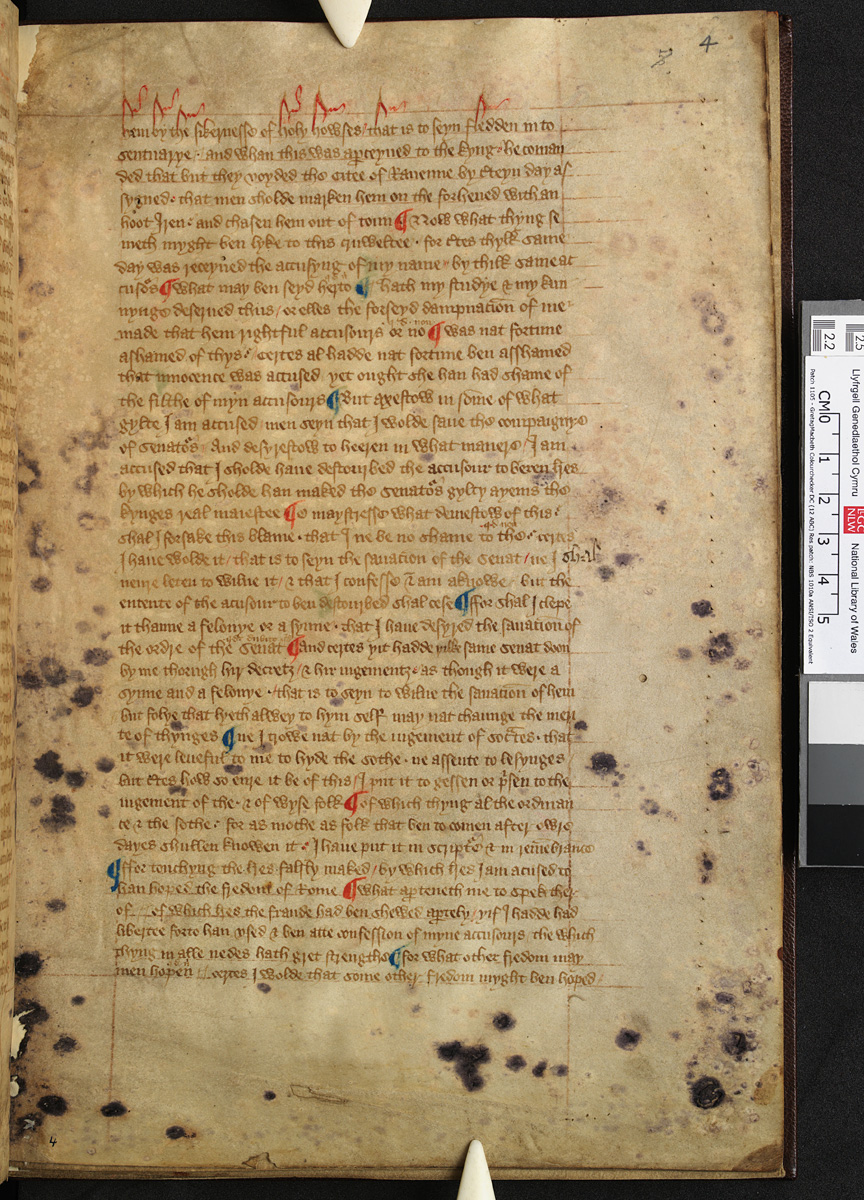 4
hem by the sikernesse of holy howses / that is to seyn fledden in to
sentuarye · and whan this was aperceyued to the kyng · he coman
ded that but they voyded the citee of Rauenne by certeyn day as
sygned · that men sholde marken hem on the forheued with an
hoot Iren · and chasen hem out of toun ¶ Now what thyng se
meth myght ben lyke to this cruweltee · for certes thylk same
day was receyued the accusyng of my name · by thilk same ac
cusors ¶ what may ben seyd herto ¶ hath my studye & my kun
nynge deserued thus / or elles the forseyd dampnacion of me
made that hem rightful accusours or no ¶ was nat fortune
ashamed of thys · certes al hadde nat fortune ben asshamed
that innocence was accused / yet ought she han had shame of
the filthe of myn accusours ¶ But axestow in som of what
gylte I am accused / men seyn that I wolde saue the compaignye
of senators · And desyrestow to heeren in what manere / I am
accused that I sholde haue destourbed the accusour to beren lres
by which he sholde han maked the senators gylty ayenis the
kynges real maiestee ¶ O maystresse what demestow of this ·
shal I forsake this blame · that I ne be no shame to the · certes
I haue wolde it / that is to seyn the sauacion of the senat / ne I shal
neuere leten to wilne it / & that I confesse & am aknowe · but the
entente of the acusour to ben destourbed shal cese ¶ ffor shal I clepe
it thanne a felonye or a synne · that I haue desyred the sauacion of
the ordre of the senat ¶ and certes yit hadde thilk same senat doon
by me thorugh hir decretz / & hir iugementz · as though it were a
synne and a felonye · that is to seyn to wilne the sauacion of hem
but folye that lyeth alwey to hym self may nat chaunge the meri
te of thynges ¶ ne I trowe nat by the iugement of socrtes · that
it were leueful to me to hyde the sothe · ne assente to lesynges
but certes how so euere it be of this / I put it to gessen or preisen to the
iugement of the · & of wyse folk ¶ of which thyng al the ordinan
ce & the sothe · for as moche as folk that ben to comen after owre
dayes shullen knowen it · I haue put it in scripture & in remembrance
¶ ffor touchyng the lres falsly maked / by which lres I am acused to
han hoped the fredom of Rome ¶ what aperteneth me to speke ther
of of which lres the fraude had ben shewed apertely / yif I hadde had
libertee forto han vsed & ben atte confession of myne accusours / the which
thyng in alle nedes hath gret strengthe ¶ for what other fredom may
men hopen certes I wolde that som other fredom myght ben hoped ·
4
2.2
2.5
CM 0 1 2 3 4 5
Llyfrgell Genedlaethol Cymru
LLGC
NLW
National Library of Wales